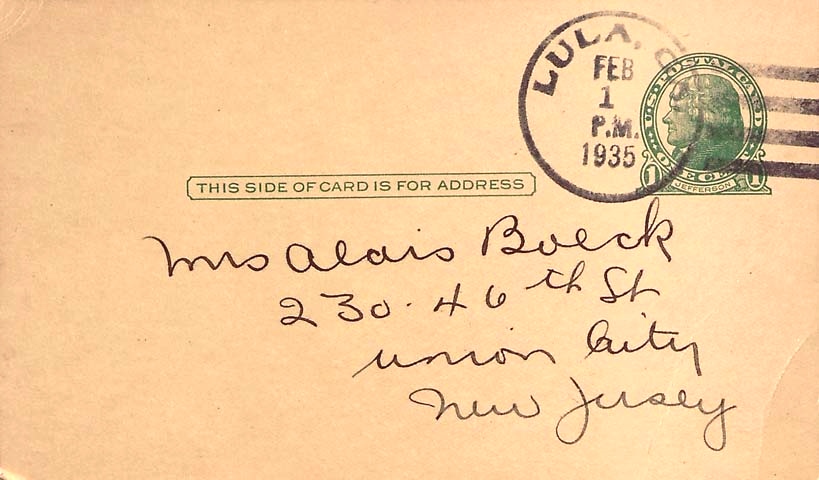 LULA, G
FEB
1
P.M.
1935
U.S. POSTAL CARD
ONE CENT
1 JEFFERSON 1
THIS SIDE OF CARD IS FOR ADDRESS
Mrs Alois Boeck
230 · 46th St
Union City
New Jersey